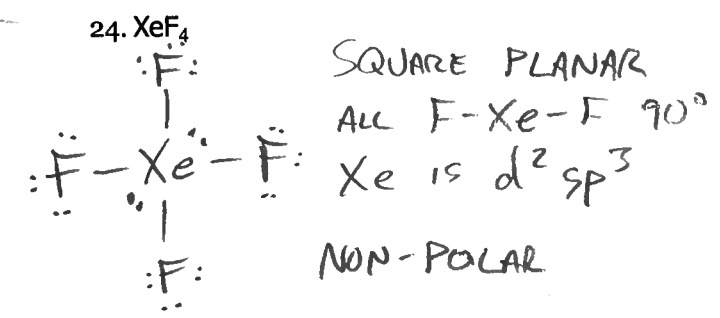 24. XeF₄
:F̈:
SQUARE PLANAR
ALL F-Xe-F 90°
:F̈-Xe-F̈:
Xe IS d² sp³
NON-POLAR
:F: